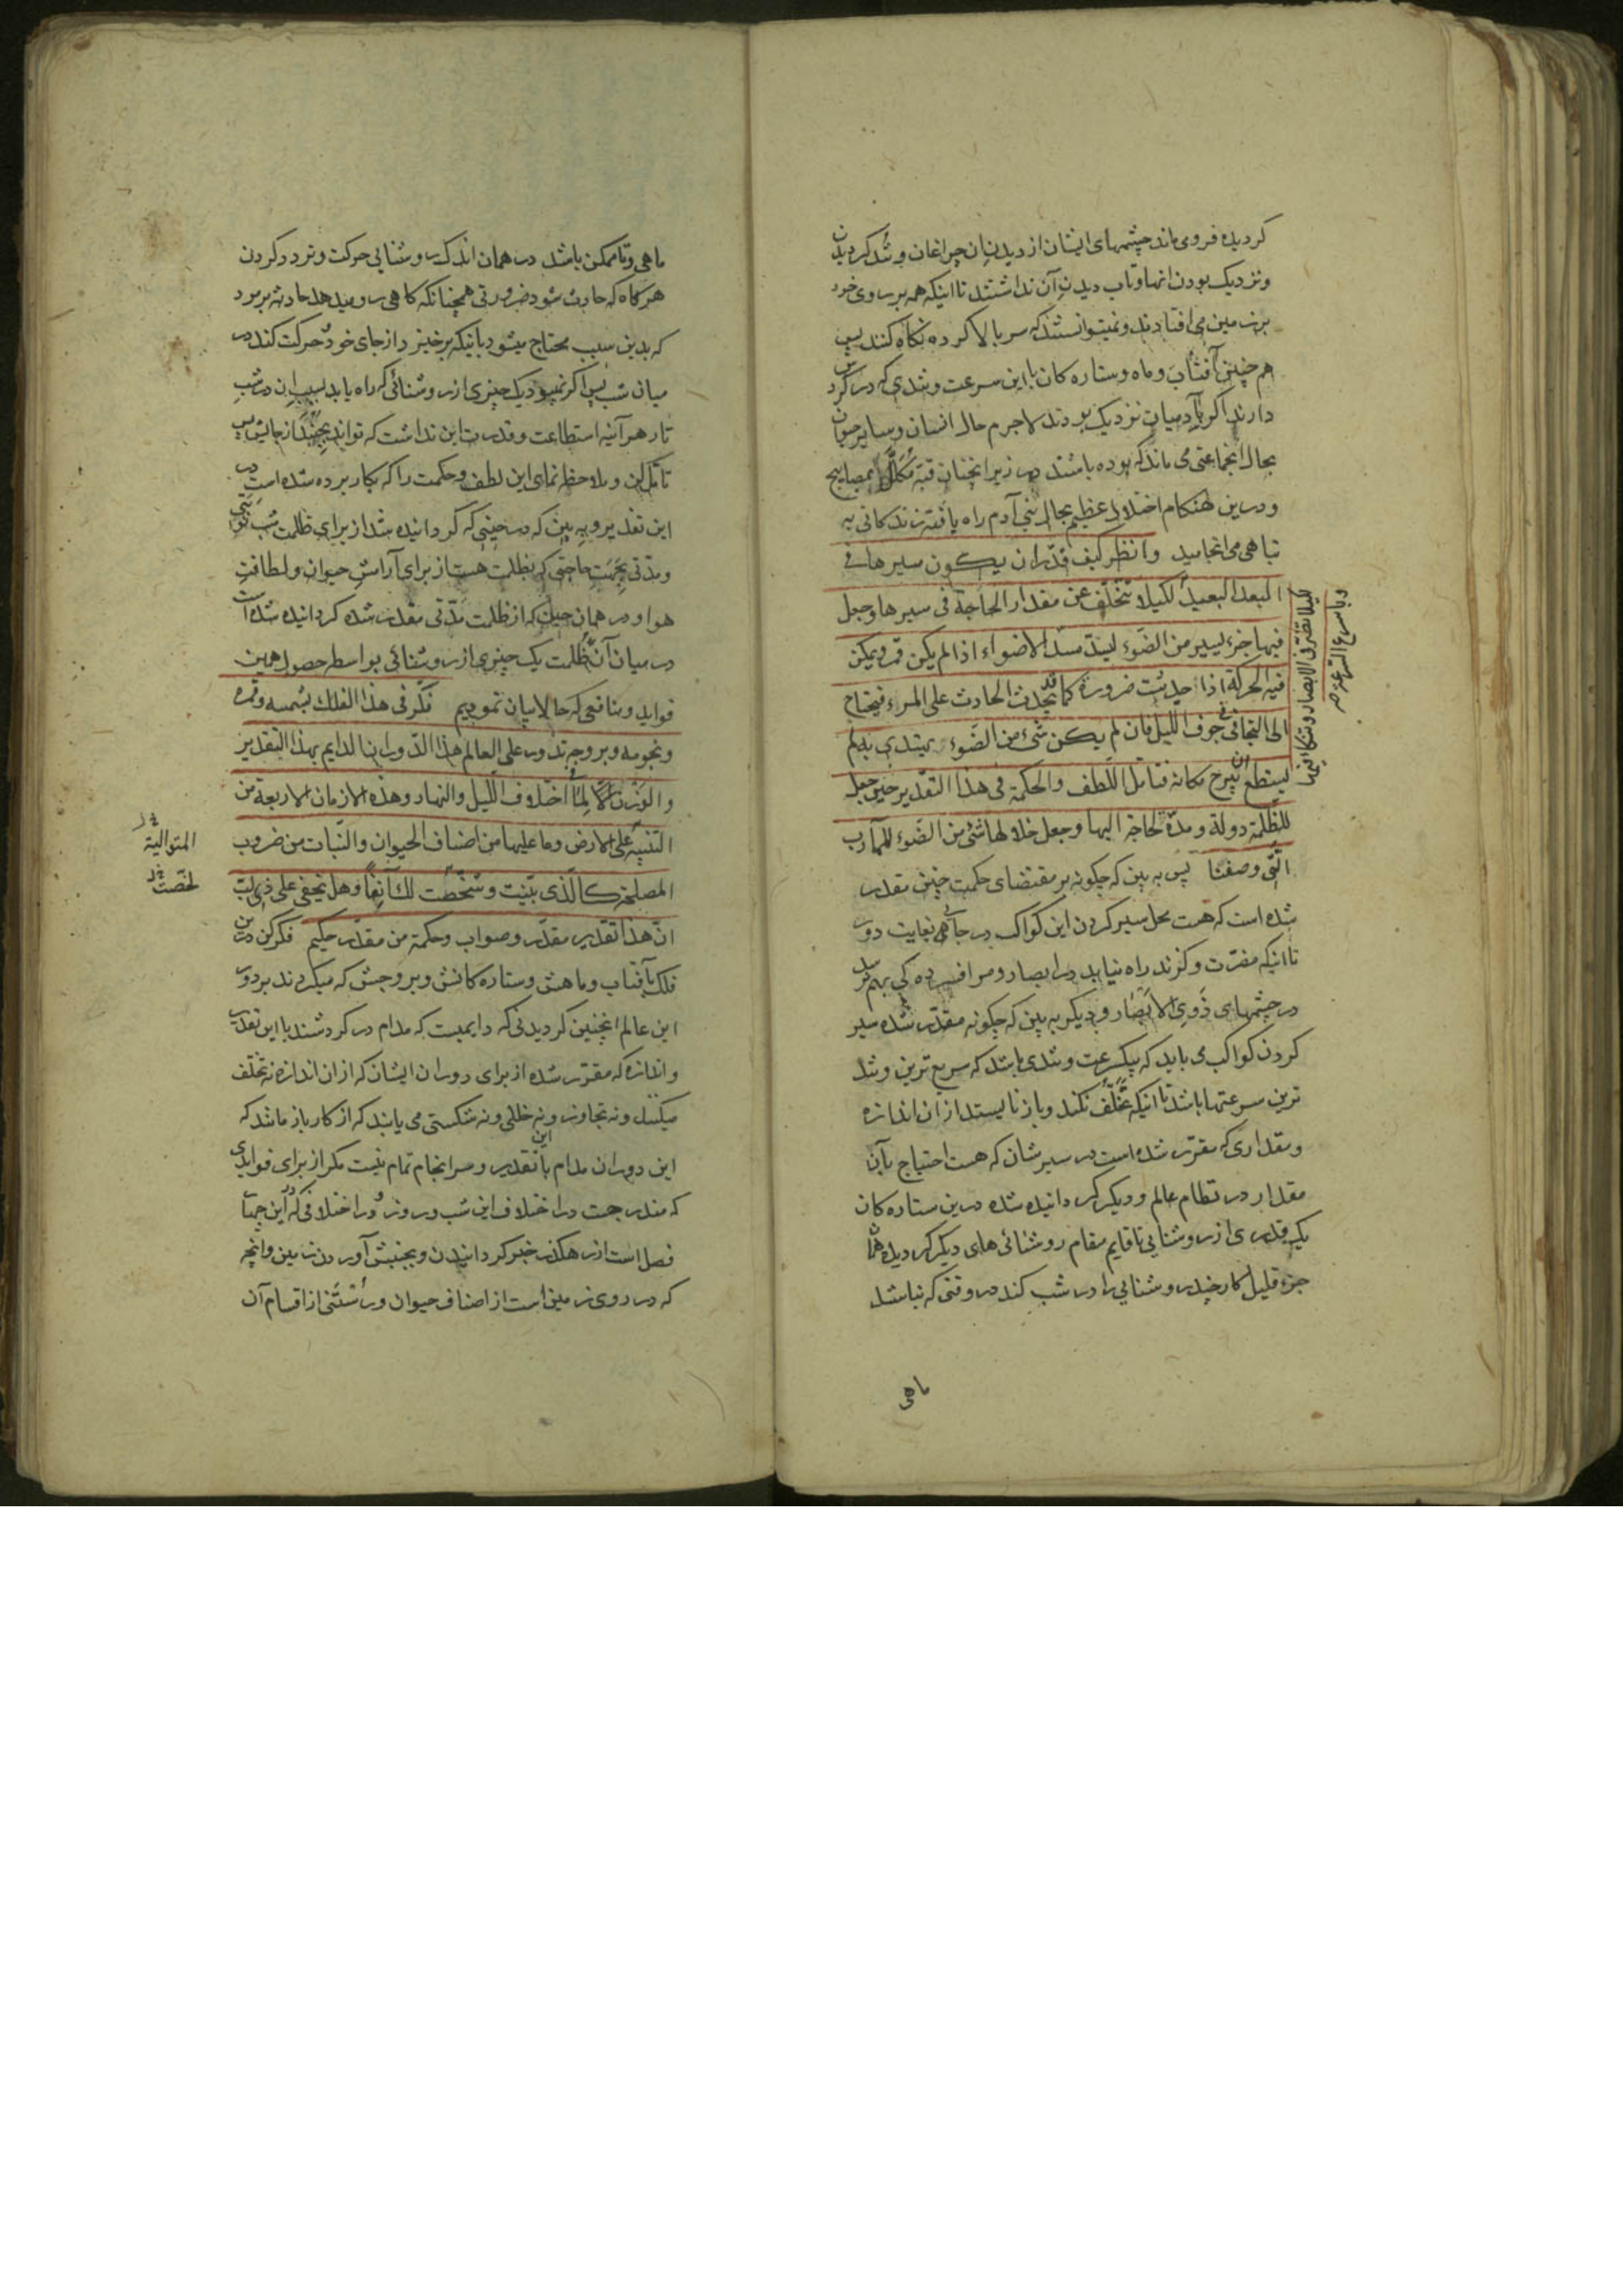 کردیده فرو می ماند چشمهای ایشان از دیدن آن چراغان و تند کردیدن
و نزدیک بودن انها و تاب دیدن آن نداشتند تا اینکه همه بر روی خود
بر زمین می افتادند و نمیتوانستند که سر بالا کرده نکاه کنند پس
هم چنین آفتاب و ماه و ستاره کان با این سرعت و تندی که در کردش
دارند اکر بآدمیان نزدیک بودند لاجرم حال انسان و سایر حیوان
بحال انجماعتی می ماند که بوده باشند در زیر انچنان قبّه مکلّل بمصابیح
و درین هنکام اختلال عظیم بحال بنی آدم راه یافته زندکانی به
تباهی می انجامید وانظر کیف قدّر ان یکون سیرها فی
البعد البعید لکیلا تتخلّف عن مقدار الحاجة فی سیرها وجعل
فیها جزء یسیر من الضوء لیسدّ مسدّ الاضواء اذا لم یکن قمر ویمکن
فیه الحرکة اذا حدثت ضرورة کما قد تحدث الحادث علی المرء فیحتاج
الی التجافی فی جوف اللیل فان لم یکن شیء من الضوء یهتدی به لم
یستطع ان یبرح مکانه فتامل اللطف والحکمة فی هذا التقدیر حین جعل
للظّلمة دولة ومدّة لحاجة الیها وجعل خلالها شیء من الضوء للمآرب
الّتی وصفنا پس به بین که چکونه بر مقتضای حکمت چنین مقدر
شده است که هست محل سیر کردن این کواکب در جاهی بغایت دور
تا اینکه مضرّت و کزند راه نیابد در ابصار و مر افسرده کی بهم نرسد
در چشمهای ذوی الابصار و دیکر به بین که چکونه مقدّر شده سیر
کردن کواکب می باید که بیکسرعت و تندی باشد که سریع ترین و تند
ترین سرعتها باشد تا انیکه تخلّف نکند و باز نا یستد از ان اندازه
و مقداری که مقرّر شده است در سیر شان که هست احتیاج بآن
مقدار در نظام عالم و دیکر کردانیده شده درین ستاره کان
یک قدری از روشنایی تا قایم مقام روشنائی های دیکر کردیده
جزء قلیل کار چندر روشنایی را در شب کند در وقتی که نباشد
ماهی
لکیلا تضرّ فی الابصار وتنکأ فیها
وباسرع السّرعة صح
ماهی و تا ممکن باشد در همان اندک روشنایی حرکت و تردد کردن
هرکاه که حادث شود ضرورتی همچنانکه کاهی رو میدهد حادثه بر مرد
که بدین سبب محتاج میشود بانیکه برخیزد از جای خود و حرکت کند در
میان شب پس اکر نمیبود یک چیزی از روشنائی که راه یابد بسبب ان در شب
تار هر آینه استطاعت و قدرت این نداشت که تواند بجنبد از جایش پس
تامّل کن و ملاحظه نمای این لطف و حکمت را که بکار برده شده است در
این تقدیر و به بین که در حینی که کردانیده شد از برای ظلمت شب نوبتی
و مدّتی بجهت حاجتی که بظلمت هست از برای آرامش حیوان و لطافت
هوا و در همان حین که از ظلمت مدّتی مقدر شده کردانیده شده است
در میان آن ظلمت یک چیزی از روشنائی بواسطه حصول همین
فواید و منافعی که حالا بیان نمودیم فکّر فی هذا الفلک بشمسه وقمره
ونجومه وبروجه تدور علی العالم هذا الدّوران الدایم بهذا التقدیر
والوزن لما اختلاف اللّیل والنهار وهذه الازمان الاربعة من
التنبیه علی الارض وما علیها من اصناف الحیوان والنّبات من ضروب
المصلحة کالّذی بیّنت وشخّصت لک آنفاً وهل یخفی علی ذی لبّ
انّ هذا تقدیر مقدّر وصواب وحکمة من مقدّر حکیم فکر کن درین
فلک بآفتاب و ماهش و ستاره کانش و بروجش که میکردند بر دور
این عالم انچنین کردیدنی که دایمیست که مدام در کردشند با این تقدیر
و اندازه که مقرّر شده از برای دوران ایشان که از ان اندازه نه تخلف
میکنند و نه تجاوز و نه خللی و نه شکستی می یابند که از کار باز مانند که
این دوران مدام با این تقدیر و سرانجام تمام نیست مکر از برای فوایدی
که مندرجست در اختلاف این شب و روز و در اختلافی که در این چهار
فصل است از هکذر خبر کردانیدن و بجنبش آوردن زمین و انچه
که در روی زمین است از اصناف حیوان و رستنی از اقسام آن
المتوالیة
لخّصت